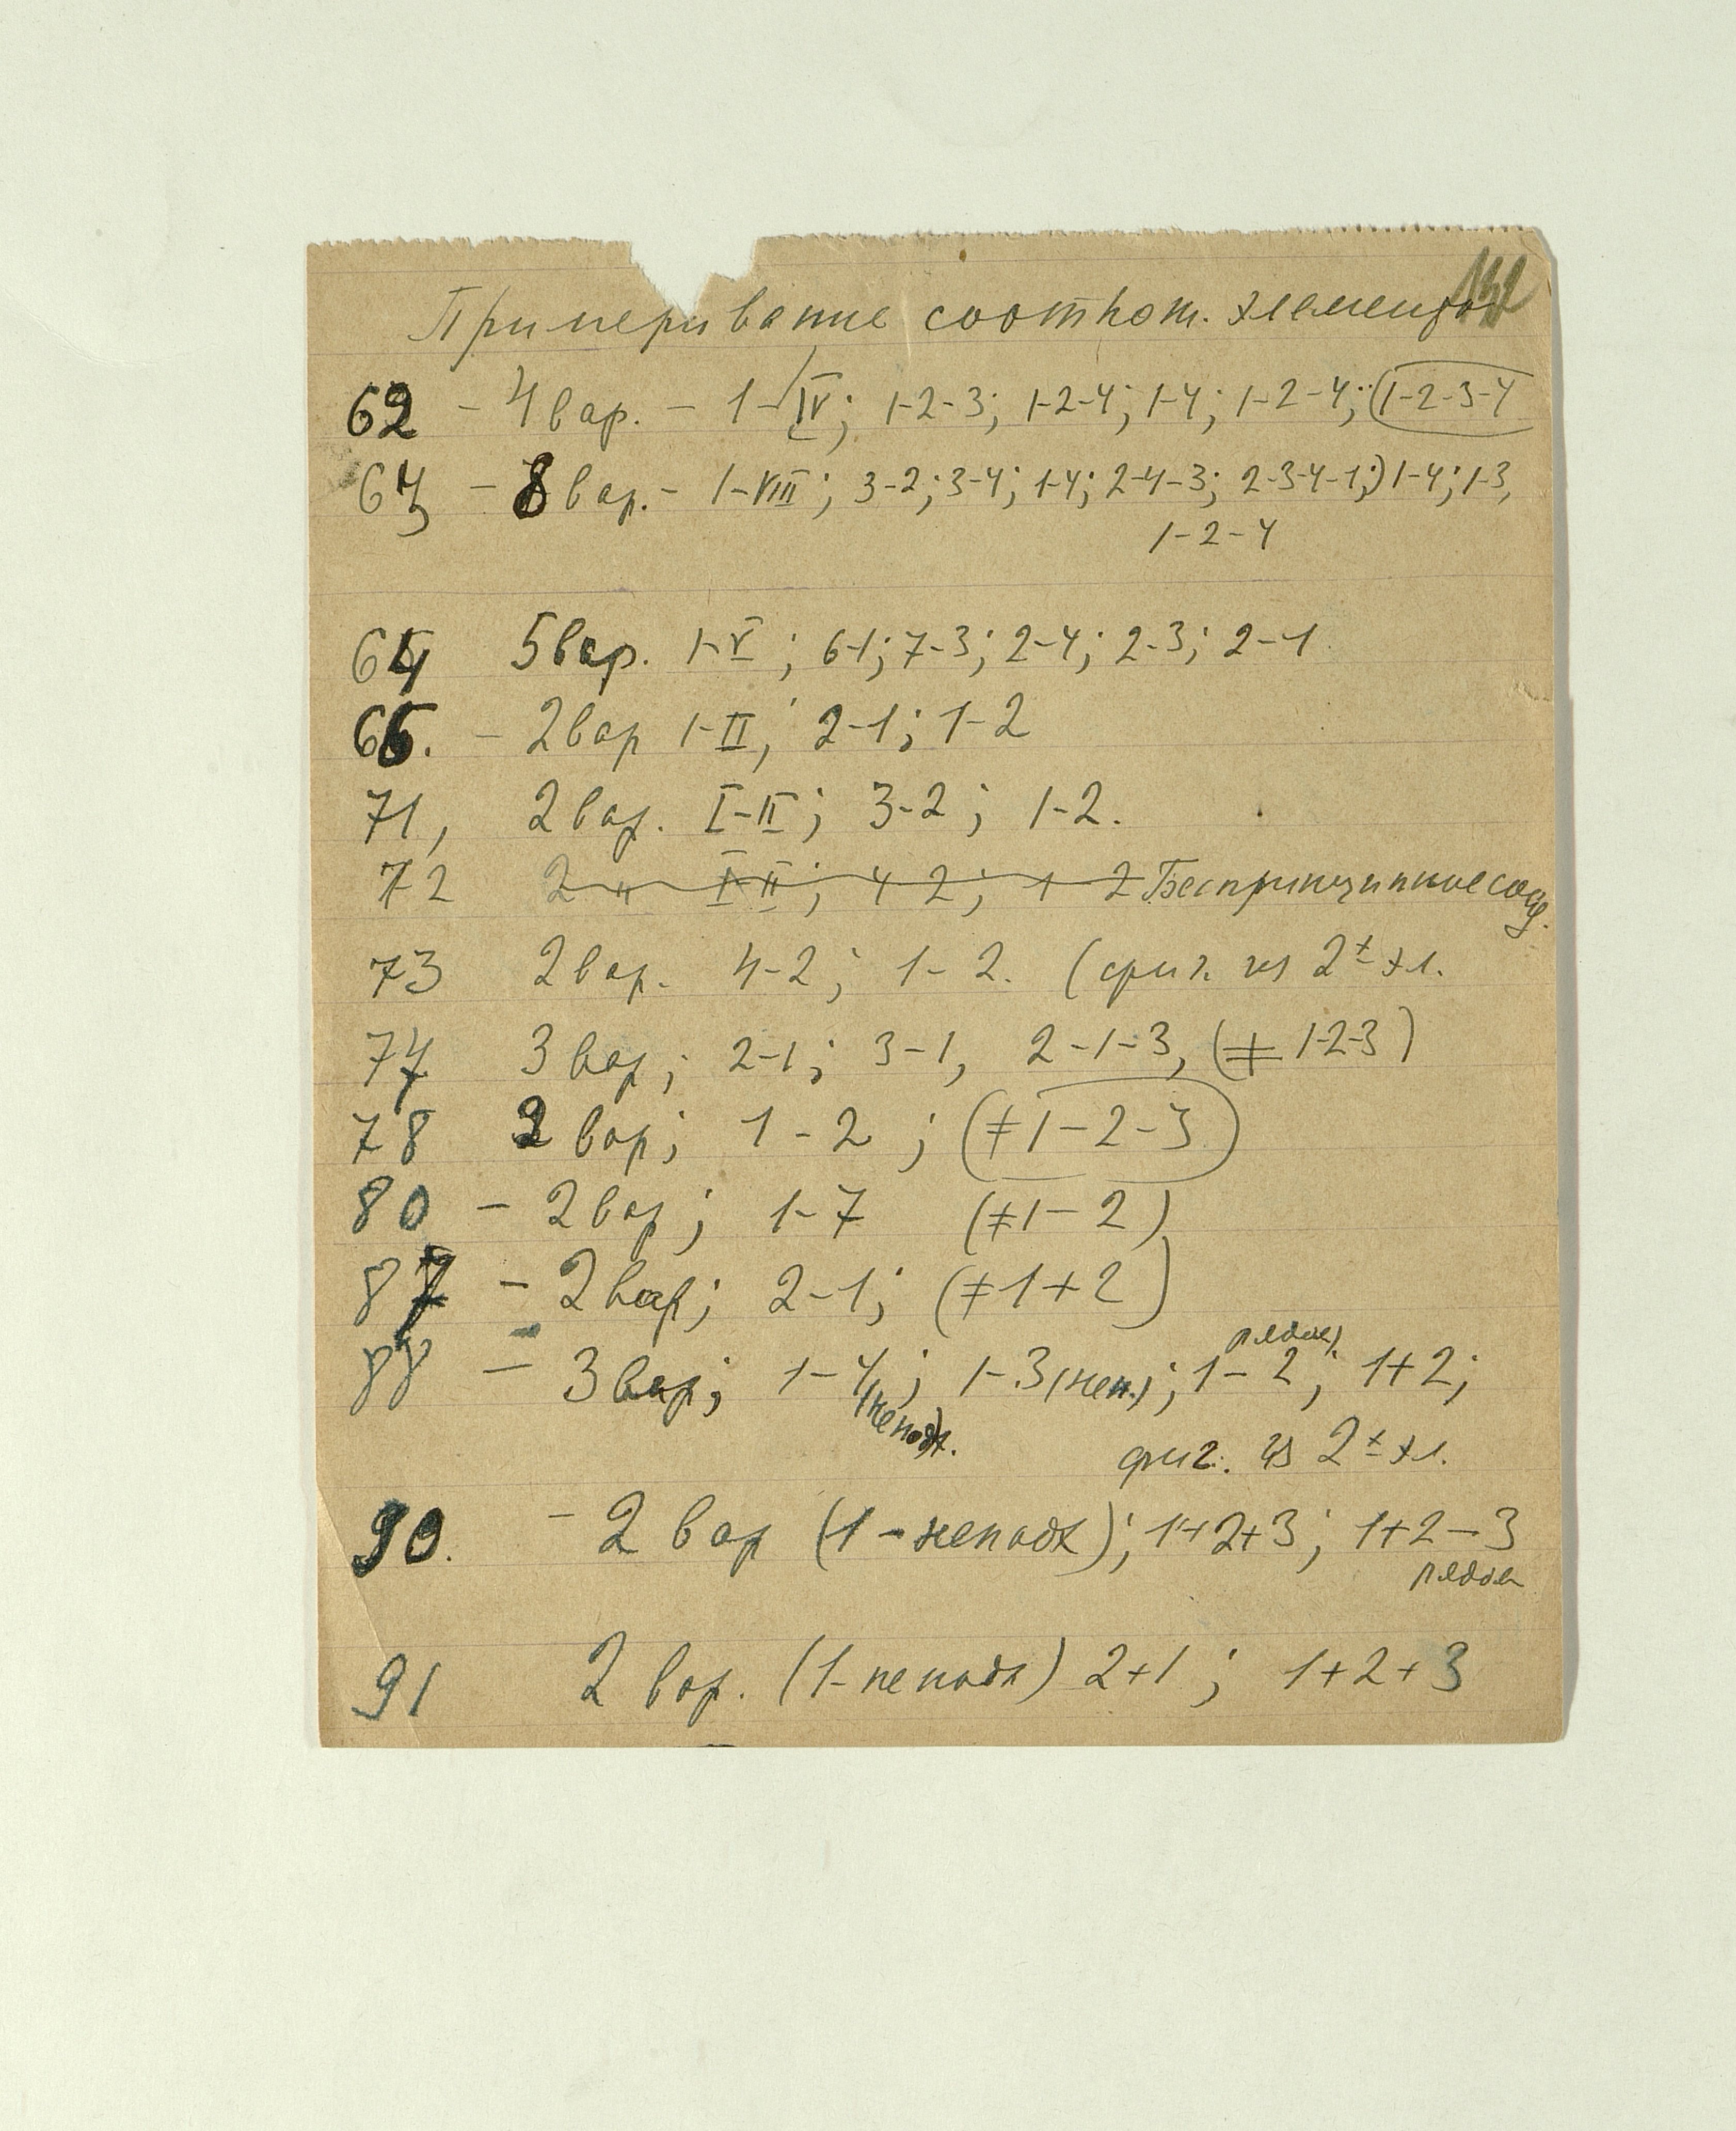 Примеривание соотнош. элементов
62 - 4 вар. - 1-IV; 1-2-3; 1-2-4; 1-4; 1-2-4; (1-2-3-4
63 - 8 вар. - 1-VIII; 3-2; 3-4; 1-4; 2-4-3; 2-3-4-1;) 1-4; 1-3,
1-2-4
64 5 вар. 1-V; 6-1; 7-3; 2-4; 2-3; 2-1
66. - 2 вар 1-II; 2-1; 1-2
71, 2 вар. I-II; 3-2; 1-2.
72 2 " I-II; 4-2; 1-2 Беспринципное соед.
73 2 вар. 4-2; 1-2. (фиг. из 2х эл.
74 3 вар; 2-1; 3-1, 2-1-3, (≠ 1-2-3)
78 2 вар; 1-2; (≠ 1-2-3)
80 - 2 вар; 1-7 (≠ 1-2)
87 - 2 вар; 2-1; (≠ 1+2)
рядом)
88 - 3 вар; 1-4; 1-3 (неп.); 1-2; 1+2;
(неподх.
фиг. из 2х эл.
90. - 2 вар (1-неподх); 1+2+3; 1+2-3
рядом
91 2 вар. (1-неподх) 2+1; 1+2+3